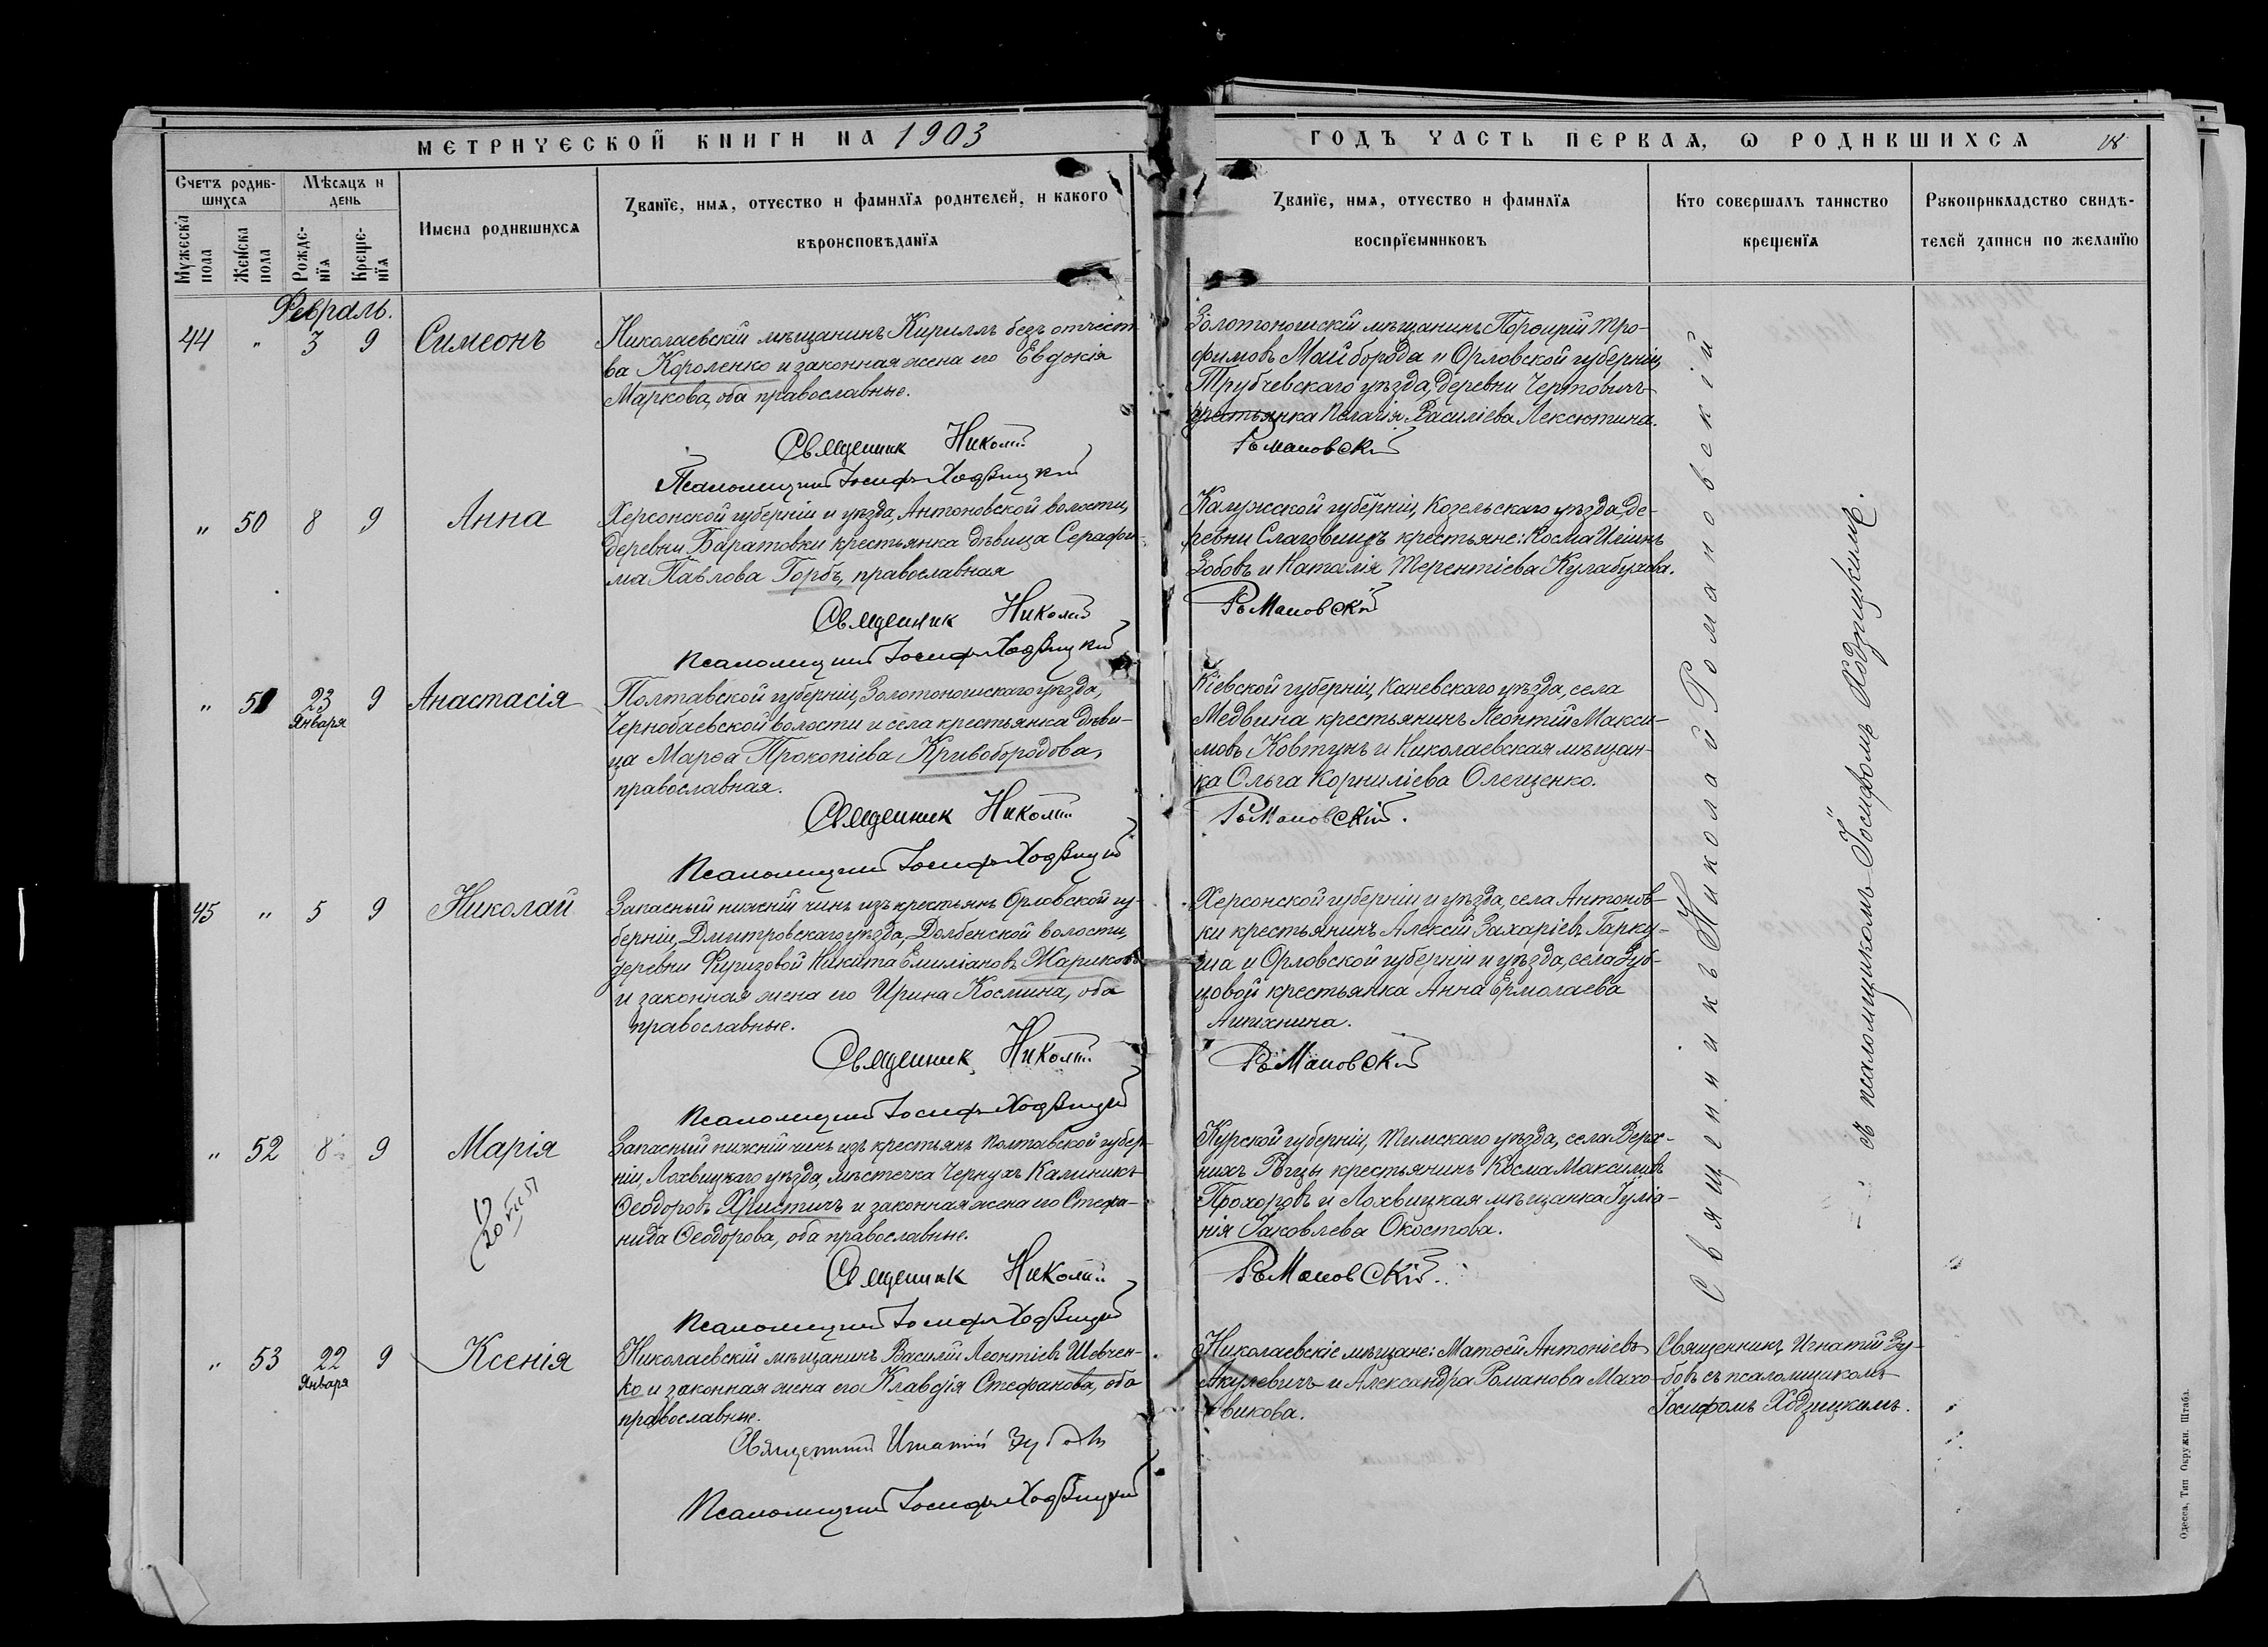 МЕТРИЧЕСКОЙ КНИГИ НА 1903
ГОДЪ ЧАСТЬ ПЕРВАЯ, Ѡ РОДИВШИХСЯ
Счетъ родив-
шихся
Мѣсяцъ и
день
Мужеска
пола
Женска
пола
Рожде-
нїя
Креще-
нїя
Имена родившихся
Званїе, имя, отчество и фамилїя родителей, и какого
вѣроисповѣданїя
Званїе, имя, отчество и фамилїя
воспрїемниковъ
Кто совершалъ таинство
крещенїя
Рукоприкладство свидѣ-
телей записи по желанїю
Февраль.
44 " 3 9 Симеонъ
Николаевскій мѣщанинъ Кириллъ безъ отчест-
ва Короленко и законная жена его Евдокія
Маркова, оба православные.
Священник Николай
Псаломщик Іосифъ Ходзицкий
Золотоношскій мѣщанинъ Порфирій Тро-
фимовъ Майборода и Орловской губерніи,
Трубчевскаго уѣзда, деревни Чертовичъ
крестьянка Пелагія Василіева Лексютина.
Романовский
" 50 8 9 Анна
Херсонской губерніи и уѣзда, Антоновской волости,
деревни Баратовки крестьянка дѣвица Серафи-
ма Павлова Горбъ, православная
Священник Николай
Псаломщик Іосифъ Ходзицкий
Калужской губерніи, Козельскаго уѣзда, де-
ревни крестьяне: Косма Илиинъ
Зобовъ и Наталія Терентіева Кулабухова.
Романовский
" 51 23 Января 9 Анастасія
Полтавской губерніи, Золотоношскаго уѣзда,
Чернобаевской волости и села крестьянка дѣви-
ца Марѳа Прокопіева Кривобородова,
православная.
Священник Николай
Псаломщик Іосифъ Ходзицкий
Кіевской губерніи, Каневскаго уѣзда, села
Медвина крестьянинъ Леонтій Макси-
мовъ Ковтунъ и Николаевская мѣщан-
ка Ольга Корниліева Олещенко.
Романовскій.
45 " 5 9 Николай
Запасный нижній чинъ изъ крестьянъ Орловской гу-
берніи, Дмитровскаго уѣзда, Долбенской волости,
деревни Никита Емиліановъ Жариковъ
и законная жена его Ирина Космина, оба
православные.
Священник Николай
Псаломщик Іосифъ Ходзицкий
Херсонской губерніи и уѣзда, села Антонов-
ки крестьянинъ Алексій Захаріевъ Гарку-
ша и Орловской губерніи и уѣзда, села
крестьянка Анна Ермолаева
Романовский
" 52 8 9 Марія
Запасный нижній чинъ изъ крестьянъ Полтавской губер-
ніи, Лохвицкаго уѣзда, мѣстечка Чернухъ Калиникъ
Ѳеодоровъ Христичъ и законная жена его Стефа-
нида Ѳеодорова, оба православные.
Священник Николай
Псаломщик Іосифъ Ходзицкий
Курской губерніи, Тимскаго уѣзда, села Верх-
нихъ крестьянинъ Косма Максимовъ
Прохоровъ и Лохвицкая мѣщанка Іуліа-
нія Іаковлева Окостова.
Романовскій.
" 53 22 Января 9 Ксенія
Николаевскій мѣщанинъ Василій Леонтіевъ Шевчен-
ко и законная жена его Клавдія Стефанова, оба
православные.
Священник Игнатий Зубовъ
Псаломщик Іосифъ Ходзицкий
Николаевскіе мѣщане: Матѳей Антоніевъ
Акулевичъ и Александра Романова Махо-
викова.
Священникъ Игнатій Зу-
бовъ съ псаломщикомъ
Іосифомъ Ходзицкимъ.
Священникъ Николай Романовскій
съ псаломщикомъ Іосифомъ Ходзицкимъ.
Одесса, Тип. Окружн. Штаба.